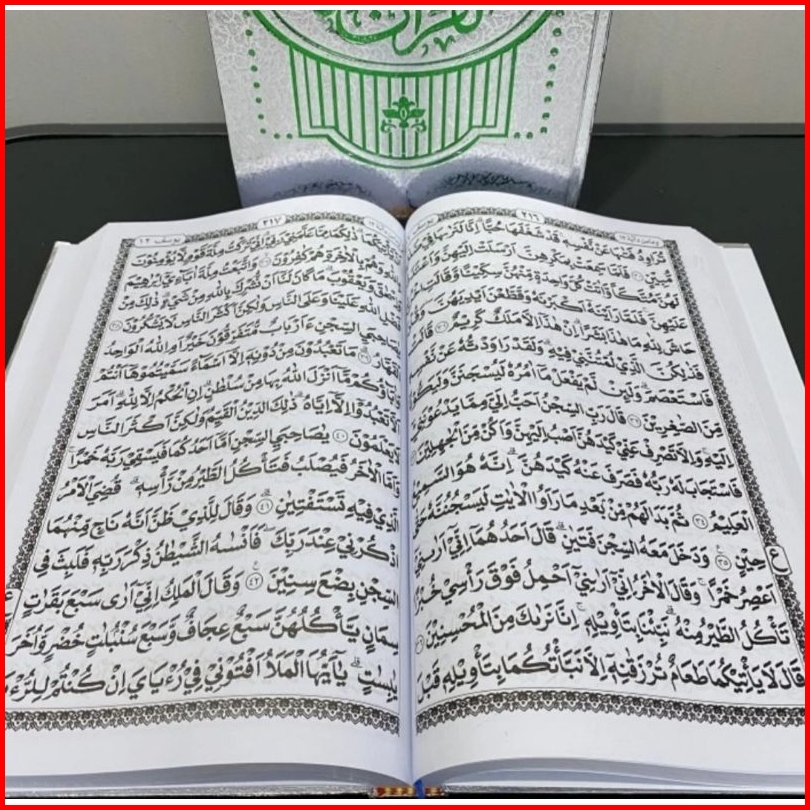 ٢١٦
تُرَاوِدُ فَتٰىهَا عَنْ نَّفْسِهٖۚ قَدْ شَغَفَهَا حُبًّاۗ اِنَّا لَنَرٰىهَا فِيْ
مُّبِيْنٍ ٣٠ فَلَمَّا سَمِعَتْ بِمَكْرِهِنَّ اَرْسَلَتْ اِلَيْهِنَّ
لَهُنَّ مُتَّكَاً وَّاٰتَتْ كُلَّ وَاحِدَةٍ مِّنْهُنَّ سِكِّيْنًا وَّقَالَتِ
عَلَيْهِنَّۚ فَلَمَّا رَاَيْنَهٗٓ اَكْبَرْنَهٗ وَقَطَّعْنَ اَيْدِيَهُنَّۖ
حَاشَ لِلّٰهِ مَا هٰذَا بَشَرًاۗ اِنْ هٰذَآ اِلَّا مَلَكٌ كَرِيْمٌ ٣١ قَالَتْ
فَذٰلِكُنَّ الَّذِيْ لُمْتُنَّنِيْ فِيْهِۗ وَلَقَدْ رَاوَدْتُّهٗ عَنْ
فَاسْتَعْصَمَۗ وَلَىِٕنْ لَّمْ يَفْعَلْ مَآ اٰمُرُهٗ لَيُسْجَنَنَّ
مِّنَ الصّٰغِرِيْنَ ٣٢ قَالَ رَبِّ السِّجْنُ اَحَبُّ اِلَيَّ مِمَّا يَدْعُوْنَنِيْٓ
اِلَيْهِۚ وَاِلَّا تَصْرِفْ عَنِّيْ كَيْدَهُنَّ اَصْبُ اِلَيْهِنَّ وَاَكُنْ مِّنَ الْجٰهِلِيْنَ
فَاسْتَجَابَ لَهٗ رَبُّهٗ فَصَرَفَ عَنْهُ كَيْدَهُنَّۗ اِنَّهٗ هُوَ السَّمِيْعُ
الْعَلِيْمُ ٣٤ ثُمَّ بَدَا لَهُمْ مِّنْۢ بَعْدِ مَا رَاَوُا الْاٰيٰتِ لَيَسْجُنُنَّهٗ حَتّٰى
حِيْنٍ ٣٥ وَدَخَلَ مَعَهُ السِّجْنَ فَتَيٰنِۗ قَالَ اَحَدُهُمَآ اِنِّيْٓ اَرٰىنِيْٓ
اَعْصِرُ خَمْرًاۚ وَقَالَ الْاٰخَرُ اِنِّيْٓ اَرٰىنِيْٓ اَحْمِلُ فَوْقَ رَأْسِيْ خُبْزًا
تَأْكُلُ الطَّيْرُ مِنْهُۗ نَبِّئْنَا بِتَأْوِيْلِهٖۚ اِنَّا نَرٰىكَ مِنَ الْمُحْسِنِيْنَ ٣٦
قَالَ لَا يَأْتِيْكُمَا طَعَامٌ تُرْزَقٰنِهٖٓ اِلَّا نَبَّأْتُكُمَا بِتَأْوِيْلِهٖ قَبْلَ
يوسف ١٢ ٢١٧
يَّأْتِيَكُمَاۗ ذٰلِكُمَا مِمَّا عَلَّمَنِيْ رَبِّيْۗ اِنِّيْ تَرَكْتُ مِلَّةَ قَوْمٍ لَّا يُؤْمِنُوْنَ
بِاللّٰهِ وَهُمْ بِالْاٰخِرَةِ هُمْ كٰفِرُوْنَ ٣٧ وَاتَّبَعْتُ مِلَّةَ اٰبَاۤءِيْٓ اِبْرٰهِيْمَ
وَاِسْحٰقَ وَيَعْقُوْبَۗ مَا كَانَ لَنَآ اَنْ نُّشْرِكَ بِاللّٰهِ مِنْ شَيْءٍۗ ذٰلِكَ مِنْ
فَضْلِ اللّٰهِ عَلَيْنَا وَعَلَى النَّاسِ وَلٰكِنَّ اَكْثَرَ النَّاسِ لَا يَشْكُرُوْنَ ٣٨
يٰصَاحِبَيِ السِّجْنِ ءَاَرْبَابٌ مُّتَفَرِّقُوْنَ خَيْرٌ اَمِ اللّٰهُ الْوَاحِدُ
الْقَهَّارُ ٣٩ مَا تَعْبُدُوْنَ مِنْ دُوْنِهٖٓ اِلَّآ اَسْمَاۤءً سَمَّيْتُمُوْهَآ اَنْتُمْ
وَاٰبَاۤؤُكُمْ مَّآ اَنْزَلَ اللّٰهُ بِهَا مِنْ سُلْطٰنٍۗ اِنِ الْحُكْمُ اِلَّا لِلّٰهِۗ اَمَرَ
اَلَّا تَعْبُدُوْٓا اِلَّآ اِيَّاهُۗ ذٰلِكَ الدِّيْنُ الْقَيِّمُ وَلٰكِنَّ اَكْثَرَ النَّاسِ
لَا يَعْلَمُوْنَ ٤٠ يٰصَاحِبَيِ السِّجْنِ اَمَّآ اَحَدُكُمَا فَيَسْقِيْ رَبَّهٗ خَمْرًاۚ
وَاَمَّا الْاٰخَرُ فَيُصْلَبُ فَتَأْكُلُ الطَّيْرُ مِنْ رَّأْسِهٖۗ قُضِيَ الْاَمْرُ
الَّذِيْ فِيْهِ تَسْتَفْتِيٰنِۗ ٤١ وَقَالَ لِلَّذِيْ ظَنَّ اَنَّهٗ نَاجٍ مِّنْهُمَا
اذْكُرْنِيْ عِنْدَ رَبِّكَۖ فَاَنْسٰىهُ الشَّيْطٰنُ ذِكْرَ رَبِّهٖ فَلَبِثَ فِى
السِّجْنِ بِضْعَ سِنِيْنَ ٤٢ وَقَالَ الْمَلِكُ اِنِّيْٓ اَرٰى سَبْعَ بَقَرٰتٍ
سِمَانٍ يَّأْكُلُهُنَّ سَبْعٌ عِجَافٌ وَّسَبْعَ سُنْۢبُلٰتٍ خُضْرٍ وَّاُخَرَ
يٰبِسٰتٍۗ يٰٓاَيُّهَا الْمَلَاُ اَفْتُوْنِيْ فِيْ رُءْيَايَ اِنْ كُنْتُمْ لِلرُّءْيَا